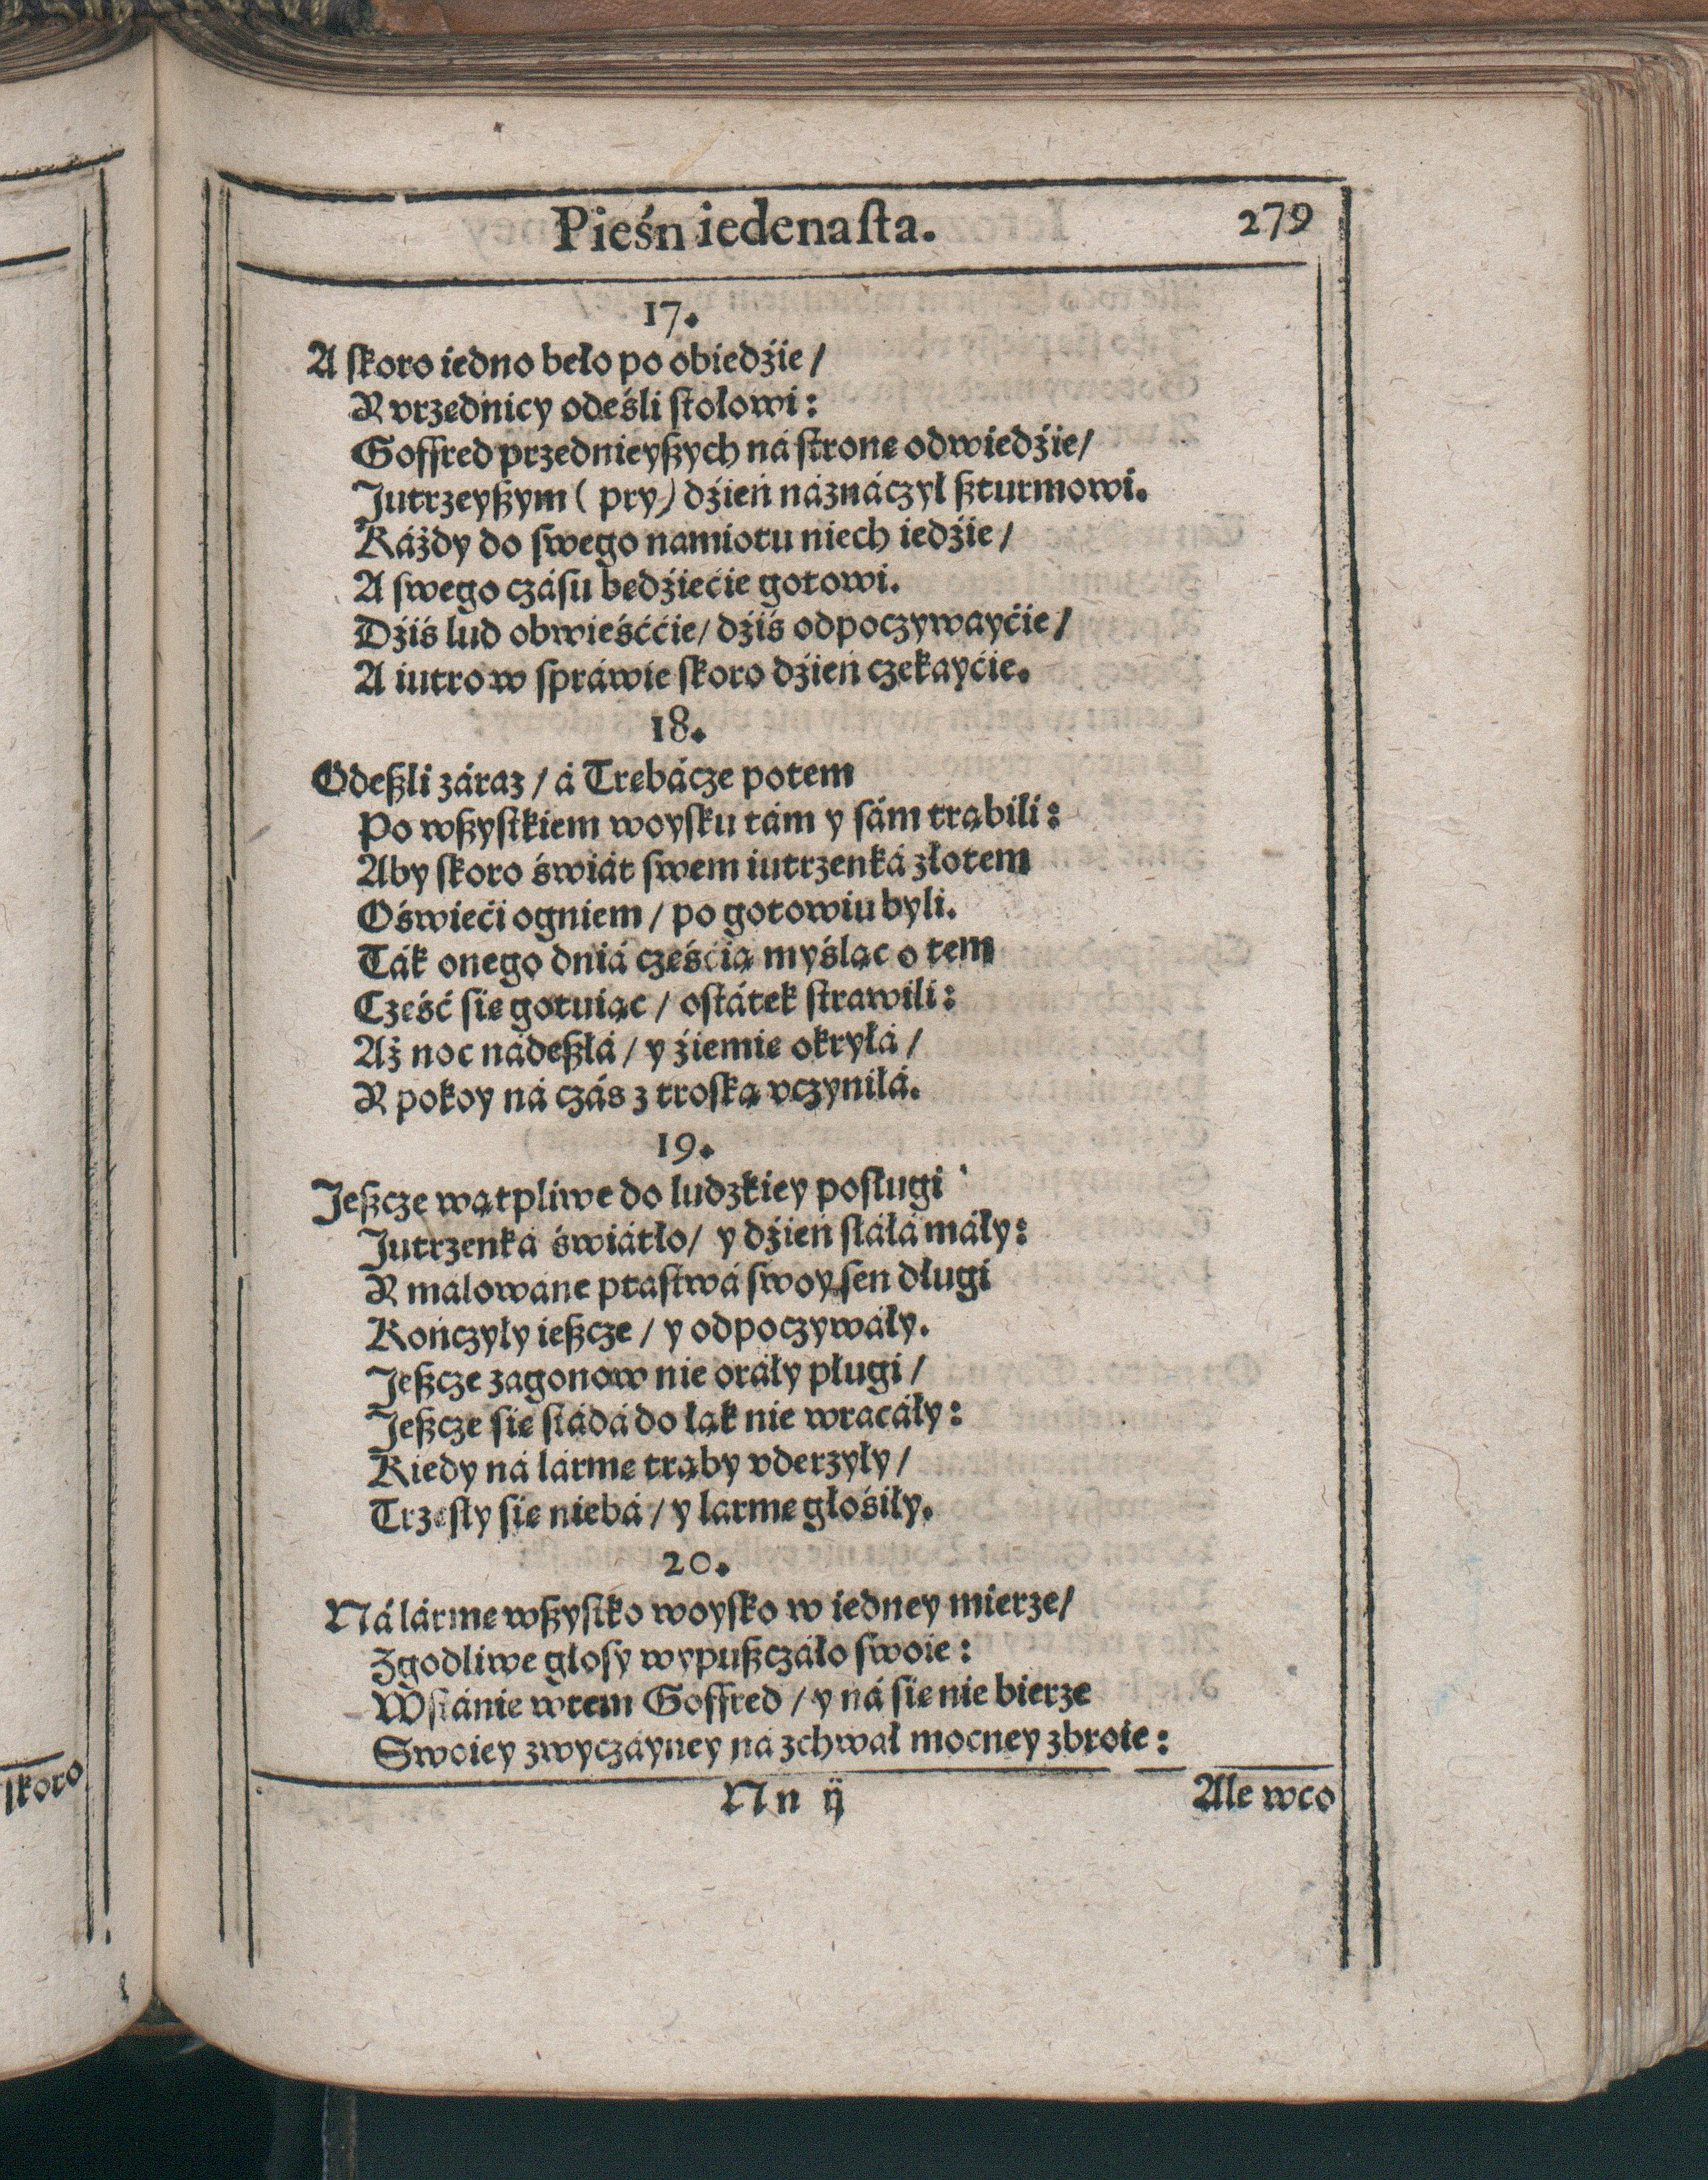 Pieśń iedenaſta.
279
17.
A ſkoro iedno beło po obiedźie /
Y vrzędnicy odeśli ſtołowi:
Goffred przednieyßych ná ſtronę odwiedźie /
Jutrzeyßym ( pry ) dźień náznáczył ßturmowi.
Káżdy do ſwego namiotu niech iedźie /
A ſwego czáſu będźiećie gotowi.
Dźiś lud obwieśććie / dźiś odpoczywayćie /
A iutro w ſpráwie ſkoro dźień czekayćie.
18.
Odeßli záraz / á Trębácze potem
Po wßyſtkiem woyſku tám y ſám trąbili:
Aby ſkoro świát ſwem iutrzenká złotem
Oświeći ogniem / po gotowiu byli.
Ták onego dniá częśćią myśląc o tem
Część ſię gotuiąc / oſtátek ſtrawili:
Aż noc nádeßłá / y źiemię okryłá /
Y pokoy ná czás z troſką vczyniłá.
19.
Jeßcze wątpliwe do ludzkiey poſługi
Jutrzenká świátło / y dźień ſłáłá máły:
Y malowáne ptaſtwá ſwoy ſen długi
Kończyły ießcze / y odpoczywáły.
Jeßcze zagonow nie oráły pługi /
Jeßcze ſię ſtádá do łąk nie wracáły:
Kiedy ná lármę trąby vderzyły /
Trzęſły ſię niebá / y larmę głośiły.
20.
Ná lármę wßyſtko woyſko w iedney mierze /
Zgodliwe głoſy wypußczáło ſwoie:
Wſtánie wtem Goffred / y ná ſię nie bierze
Swoiey zwyczáyney ná zchwał mocney zbroie:
Nn ij
Ale wco
ſkoro